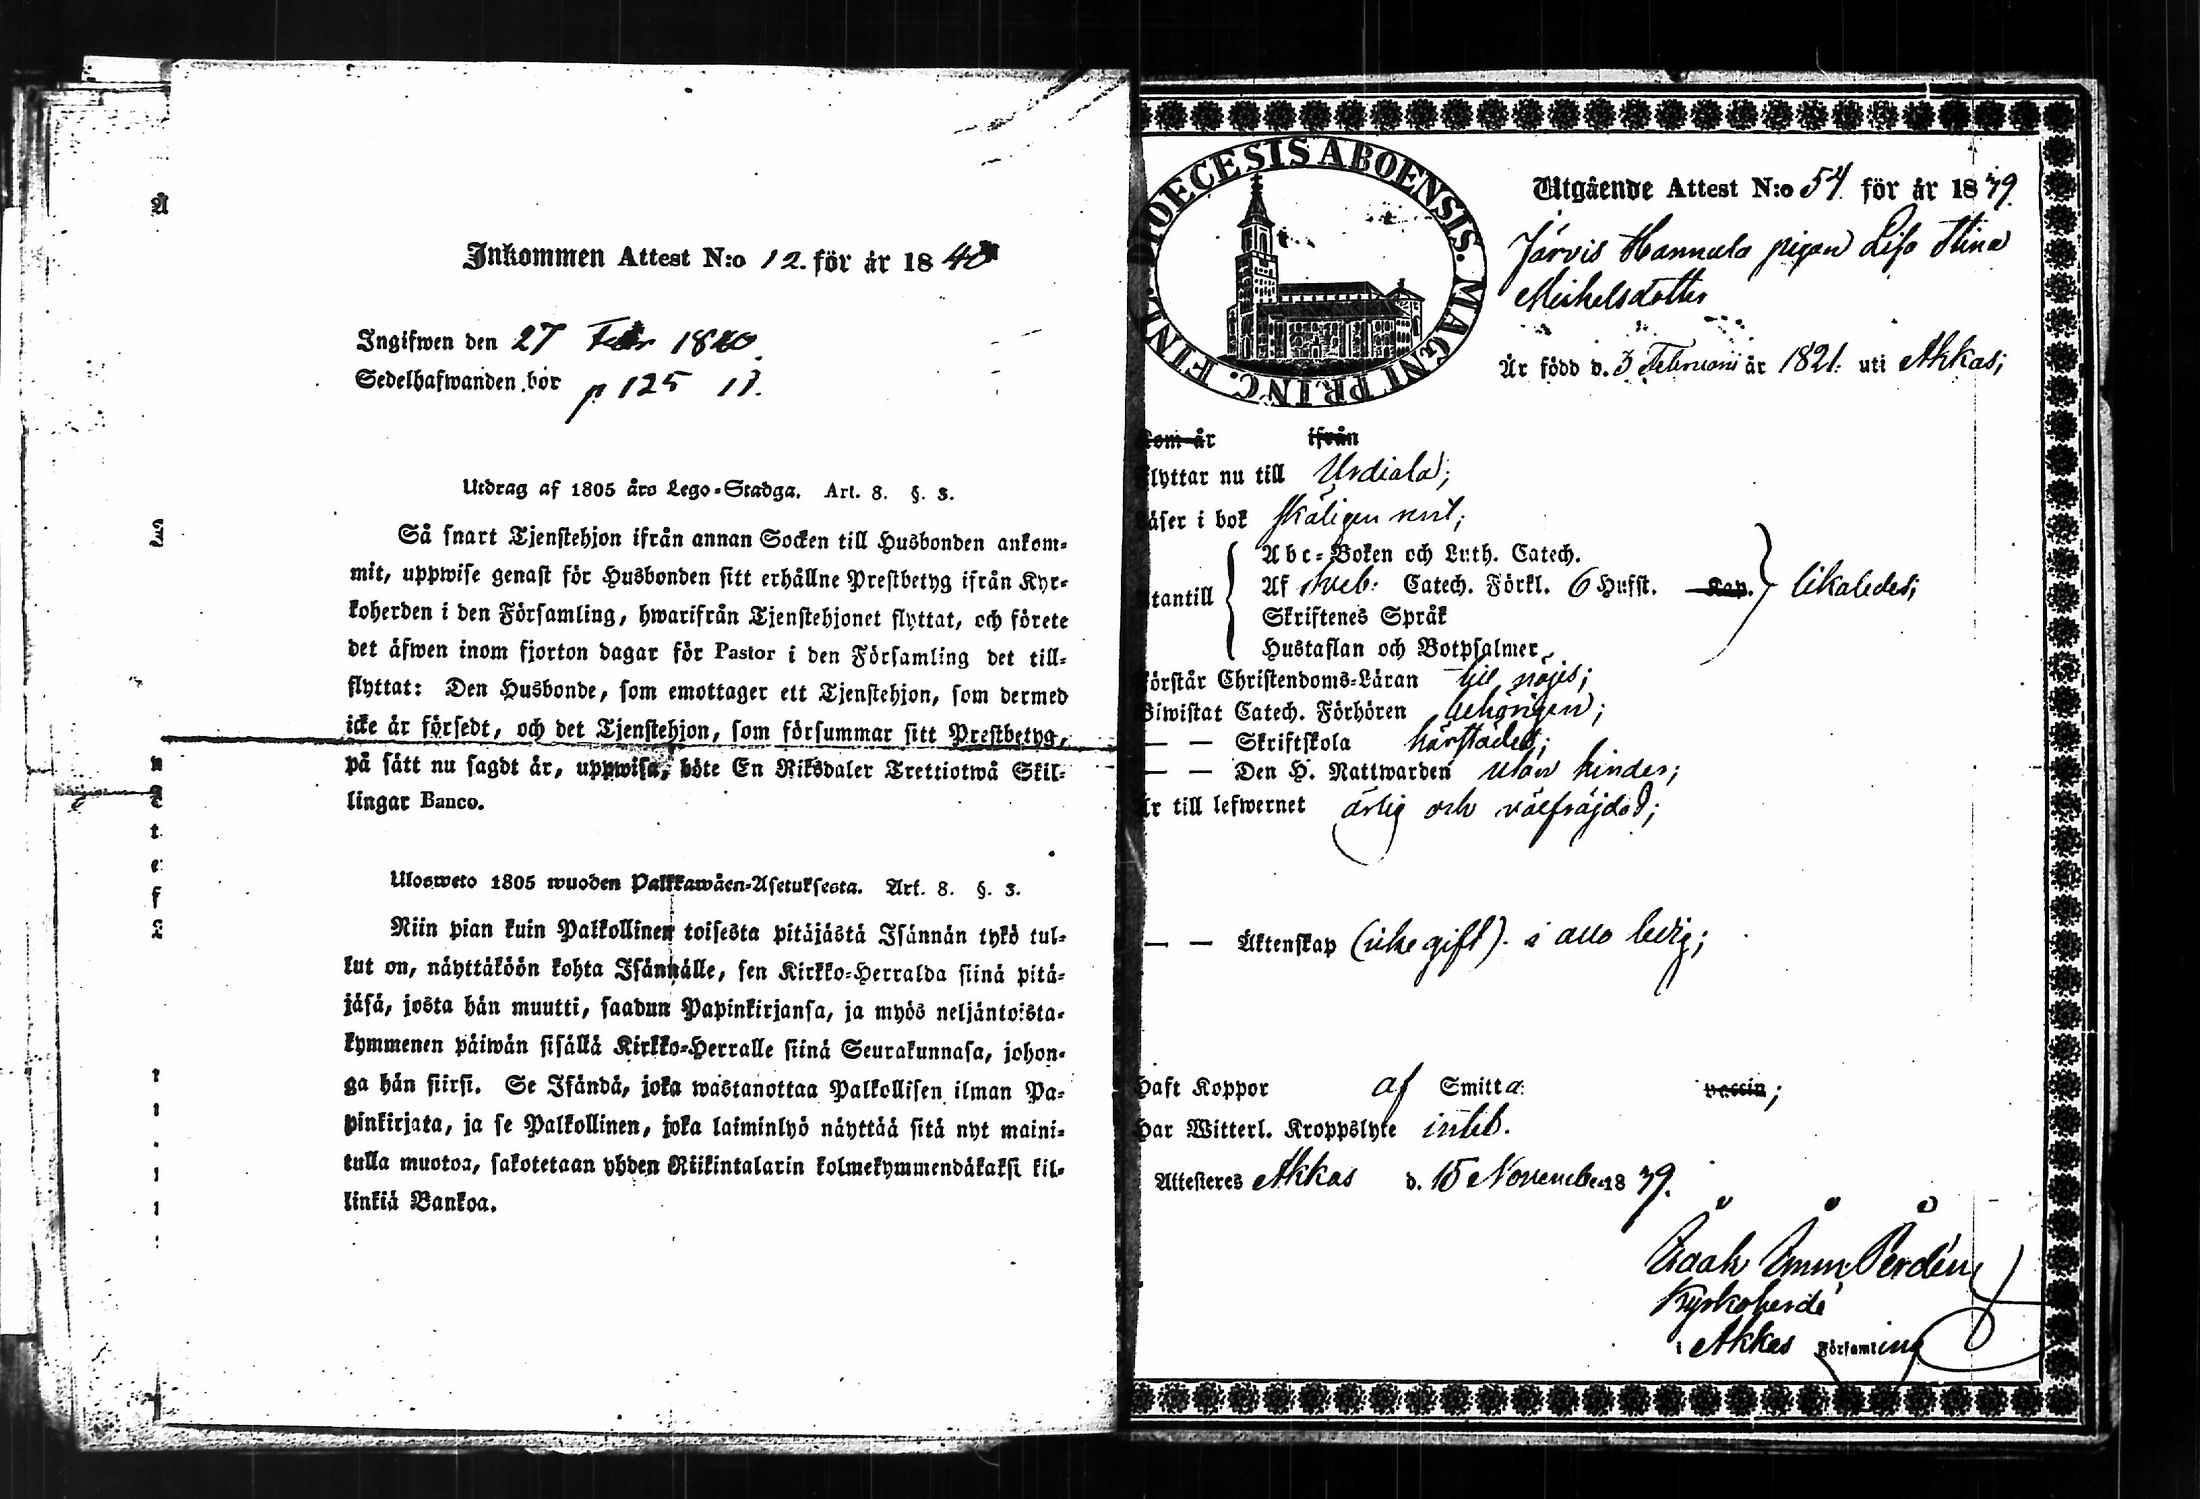 Inkommen Attest N:o 12. för år 1840
Ingifwen den 27 Febr 1840
Sedelhafwanden bor p 125 11.
Utdrag af 1805 års Lego-Stadga. Art. 8. §. 3.
Så snart Tjenstehjon ifrån annan Socken till Husbonden ankom-
mit, uppwise genast för Husbonden sitt erhållne Prestbetyg ifrån Kyr-
koherden i den Församling, hwarifrån Tjenstehjonet flyttat, och förete
det äfwen inom fjorton dagar för Pastor i den Församling det till-
flyttat: Den Husbonde, som emottager ett Tjenstehjon, som dermed
icke är försedt, och det Tjenstehjon, som försummar sitt Prestbetyg,
på sätt nu sagdt är, uppwisa, böte En Riksdaler Trettiotwå Skil-
lingar Banco.
Ulosweto 1805 wuoden Palkkawäen-Asetuksesta. Art. 8. §. 3.
Niin pian kuin Palkollinen toisesta pitäjästä Isännän tykö tul-
kut on, näyttäköön kohta Isännälle, sen Kirkko-Herralda siinä pitä-
jäsä, josta hän muutti, saadun Papinkirjansa, ja myös neljäntoista-
kymmenen päiwän sisällä Kirkko-Herralle siinä Seurakunnasa, johon-
ga hän siirsi. Se Isändä, joka wastanottaa Palkollisen ilman Pa-
pinkirjata, ja se Palkollinen, joka laiminlyö näyttää sitä nyt maini-
tulla muotoa, sakotetaan yhden Riikintalarin kolmekymmendäkaksi kil-
linkiä Bankoa.
DIOECESIS ABOENSIS. MAGNI PRINC. FINL.
Utgående Attest N:o 54 för år 1839.
Järvis Hannula pigan Lisa Stina
Michelsdotter
Är född d. 3 Februarii år 1821. uti Akkas;
Kom år ifrån
flyttar nu till Urdiala;
Läser i bok skäligen rent;
Utantill Abc-Boken och Luth. Catech.
Af Sveb: Catech. Förkl. 6 Hufst. Kap. likaledes;
Skriftenes Språk
Hustaflan och Botpsalmer
Förstår Christendoms-Läran till nöjes;
Biwistat Catech. Förhören behörigen;
— — Skriftskola härstädes;
— — Den H. Nattwarden utan hinder;
Är till lefwernet ärlig och välfräjdad;
— — Äktenskap (icke gift). i allo ledig;
Haft Koppor af Smitta vaccin;
Har Witterl. Kroppslyte intet.
Attesteres Akkas d. 15 November 1839.
Kyrkoherde
i Akkas Församling